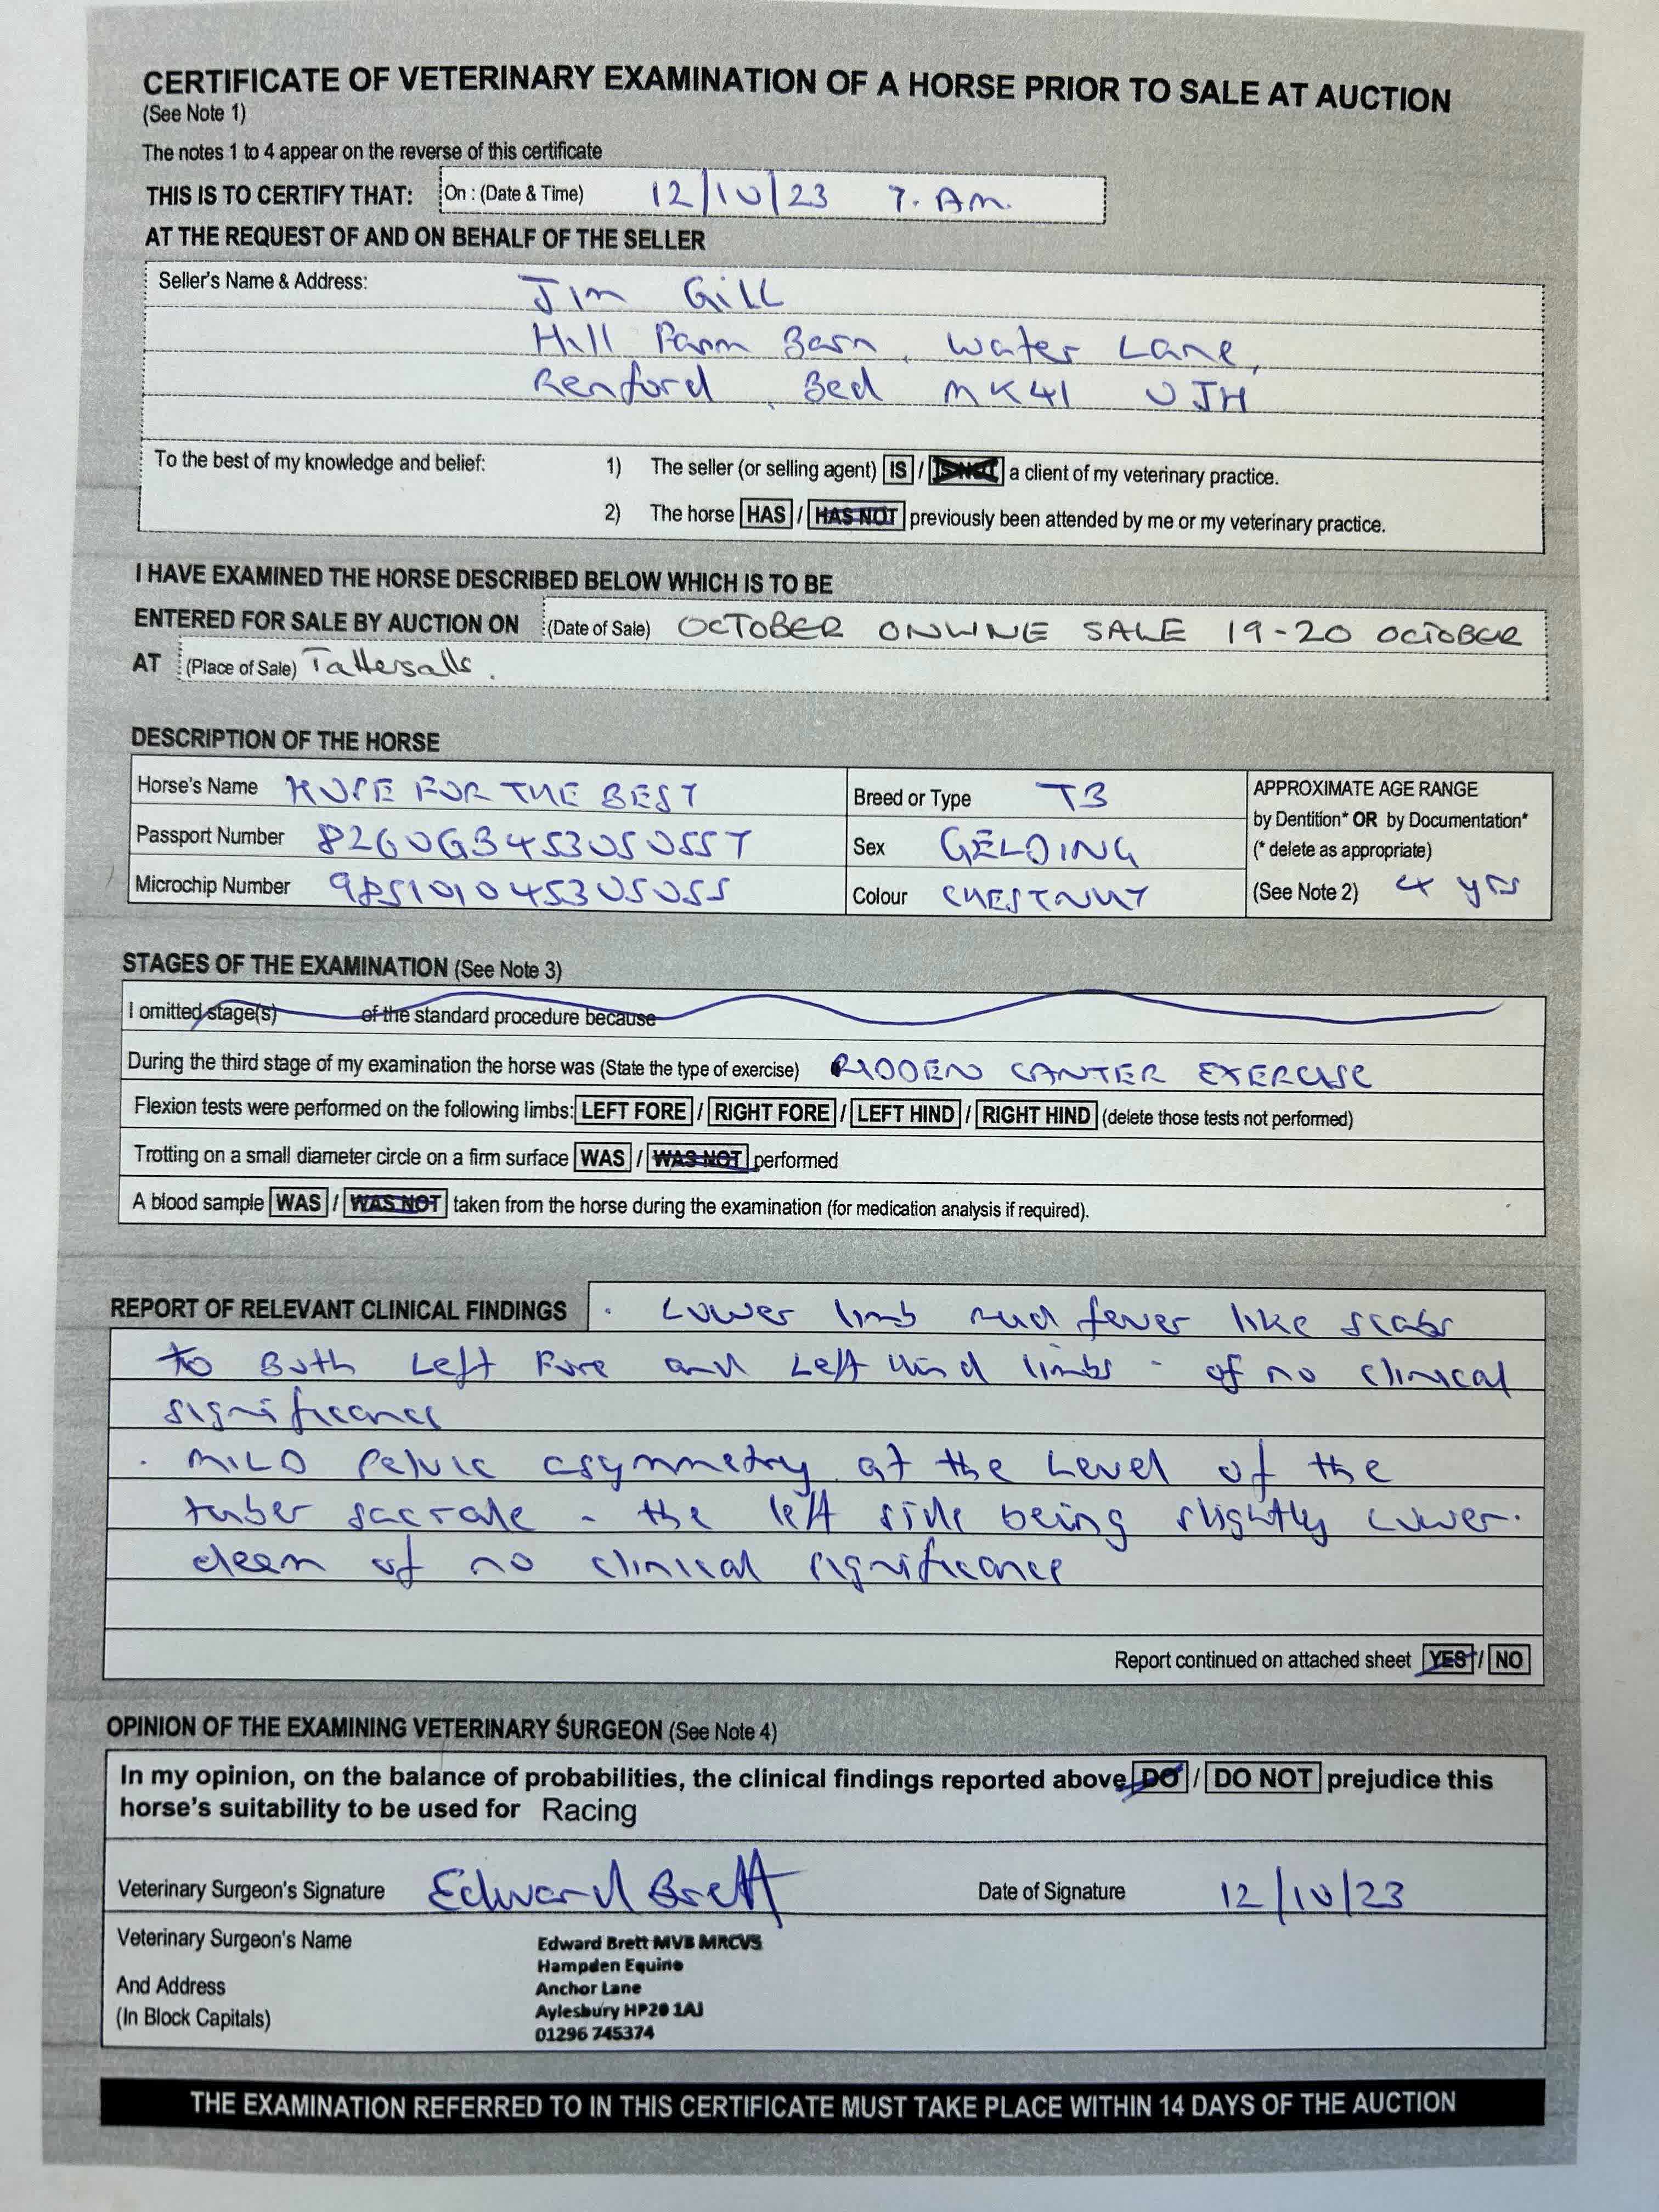 CERTIFICATE OF VETERINARY EXAMINATION OF A HORSE PRIOR TO SALE AT AUCTION
(See Note 1)
The notes 1 to 4 appear on the reverse of this certificate
THIS IS TO CERTIFY THAT: On : (Date & Time) 12/10/23 7. AM.
AT THE REQUEST OF AND ON BEHALF OF THE SELLER
Seller's Name & Address: Jim Gill
Hill Farm Barn, Water Lane,
Renford, Bed MK41 0JH
To the best of my knowledge and belief: 1) The seller (or selling agent) IS / IS NOT a client of my veterinary practice.
2) The horse HAS / HAS NOT previously been attended by me or my veterinary practice.
I HAVE EXAMINED THE HORSE DESCRIBED BELOW WHICH IS TO BE
ENTERED FOR SALE BY AUCTION ON (Date of Sale) OCTOBER ONLINE SALE 19-20 OCTOBER
AT (Place of Sale) Tattersalls.
DESCRIPTION OF THE HORSE
Horse's Name HOPE FOR THE BEST Breed or Type TB APPROXIMATE AGE RANGE
by Dentition* OR by Documentation*
Passport Number 8260GB45305055T Sex GELDING (* delete as appropriate)
Microchip Number 985101045305055 Colour CHESTNUT (See Note 2) 4 yrs
STAGES OF THE EXAMINATION (See Note 3)
I omitted stage(s) of the standard procedure because
During the third stage of my examination the horse was (State the type of exercise) RIDDEN CANTER EXERCISE
Flexion tests were performed on the following limbs: LEFT FORE / RIGHT FORE / LEFT HIND / RIGHT HIND (delete those tests not performed)
Trotting on a small diameter circle on a firm surface WAS / WAS NOT performed
A blood sample WAS / WAS NOT taken from the horse during the examination (for medication analysis if required).
REPORT OF RELEVANT CLINICAL FINDINGS . Lower limb mud fever like scabs
to Both Left Fore and Left Hind limbs - of no clinical
significance
. MILD Pelvic asymmetry at the Level of the
tuber sacrale - the left side being slightly lower.
deem of no clinical significance
Report continued on attached sheet YES / NO
OPINION OF THE EXAMINING VETERINARY SURGEON (See Note 4)
In my opinion, on the balance of probabilities, the clinical findings reported above DO / DO NOT prejudice this
horse's suitability to be used for Racing
Veterinary Surgeon's Signature Edward Brett Date of Signature 12/10/23
Veterinary Surgeon's Name
And Address
(In Block Capitals)
Edward Brett MVB MRCVS
Hampden Equine
Anchor Lane
Aylesbury HP20 1AJ
01296 745374
THE EXAMINATION REFERRED TO IN THIS CERTIFICATE MUST TAKE PLACE WITHIN 14 DAYS OF THE AUCTION